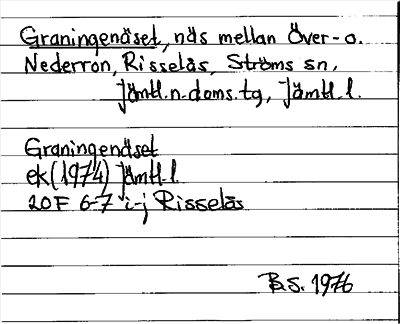 Graningenäset, näs mellan Över- o.
Nederrön, Risselås, Ströms sn,
Jämtl.n.doms.tg, Jämtl.l.
Graningenäset
ek(1974) Jämtl.l
20F 6-7 i-j Risselås
B.S. 1976